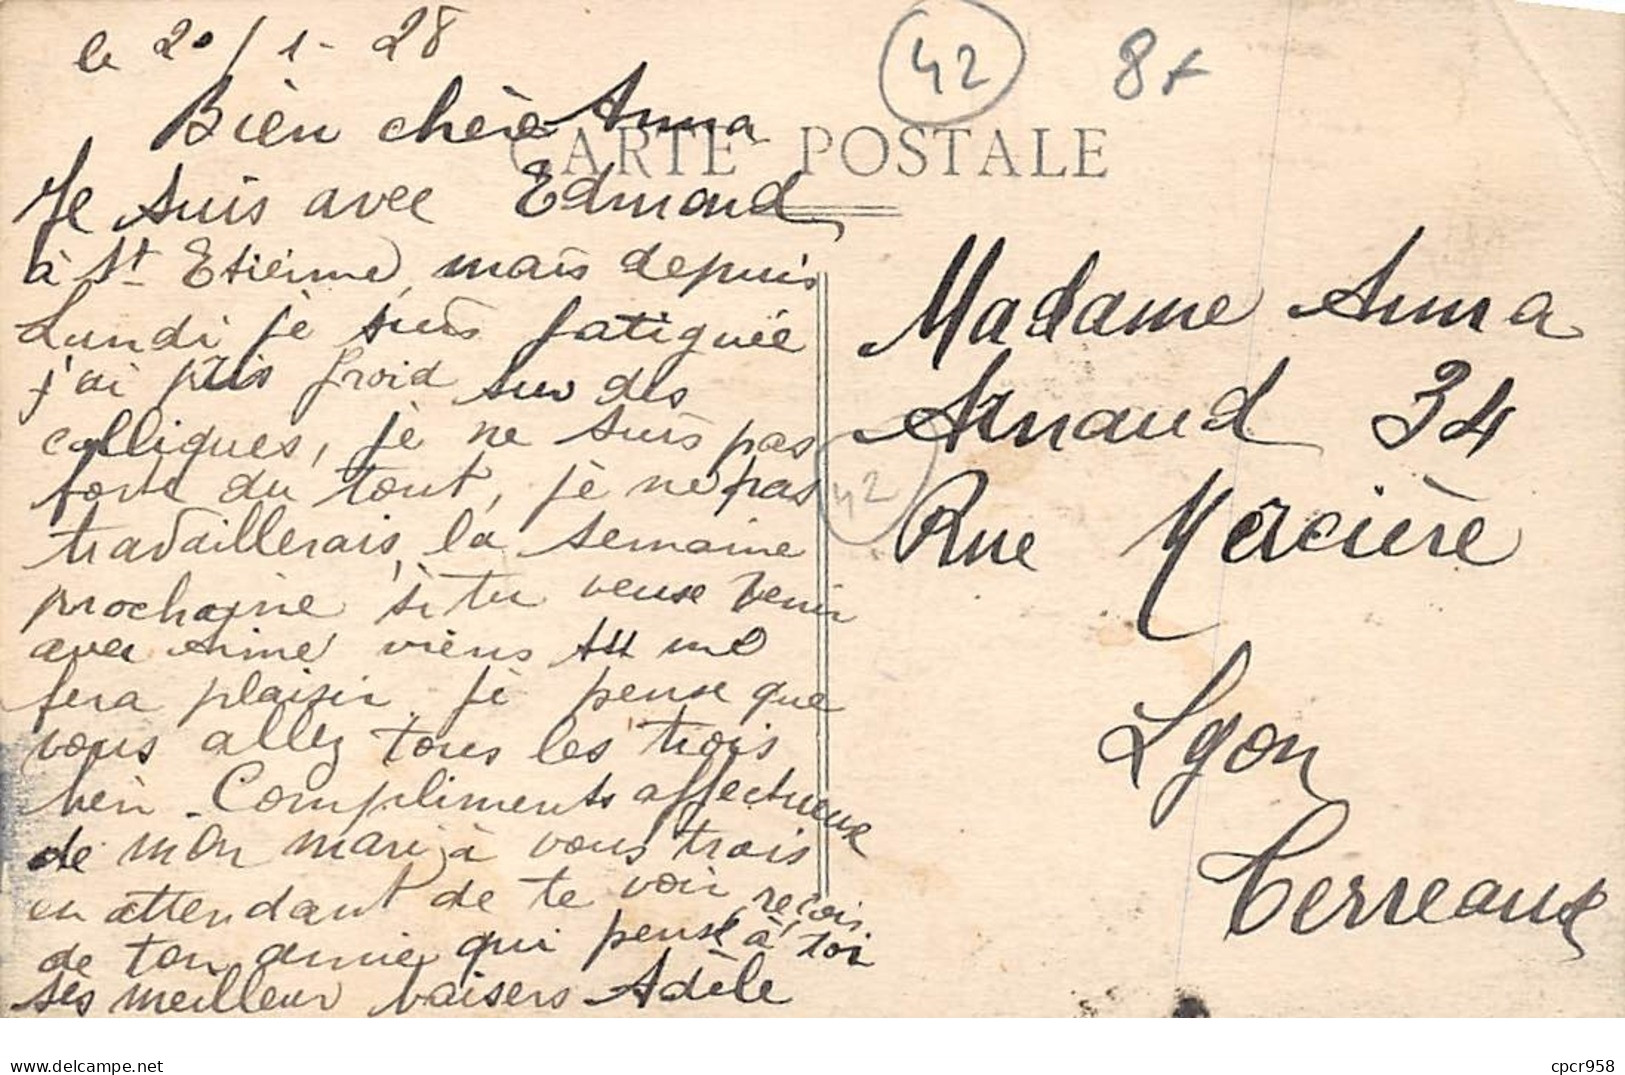 le 20/1-28
Bièn chère Anna
Je suis avec Edmond
à St Etièinne, mais depuis
Lundi jè suis fatiguée
j'ai pris froid sur des
colliques, jè ne suis pas
forte du tout, jè ne pas
travaillerais, la semaine
prochaine si tu veuse venir
avec Aimé vièns su me
fera plaisir jè pense que
vous allez tous les trois
bèin. Compliments affectueux
de mon mari à vous trois
en attendant de te voir reçois
de ton amie qui pense à toi
ses meilleur baisers Adèle
42
8+
CARTE POSTALE
Madame Anna
Arnaud 34
42
Rue Mercière
Lyon
Terreaux
www.delcampe.net
cpcr958